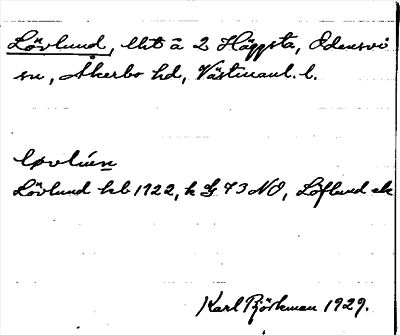 Lövlund, lht å 2 Häggsta, Odensvi
sn, Åkerbo hd, Västmanl. l.
løvlún
Lövlund kb 1922, k G 73 NO, Löflund ek
Karl Björkman 1929.